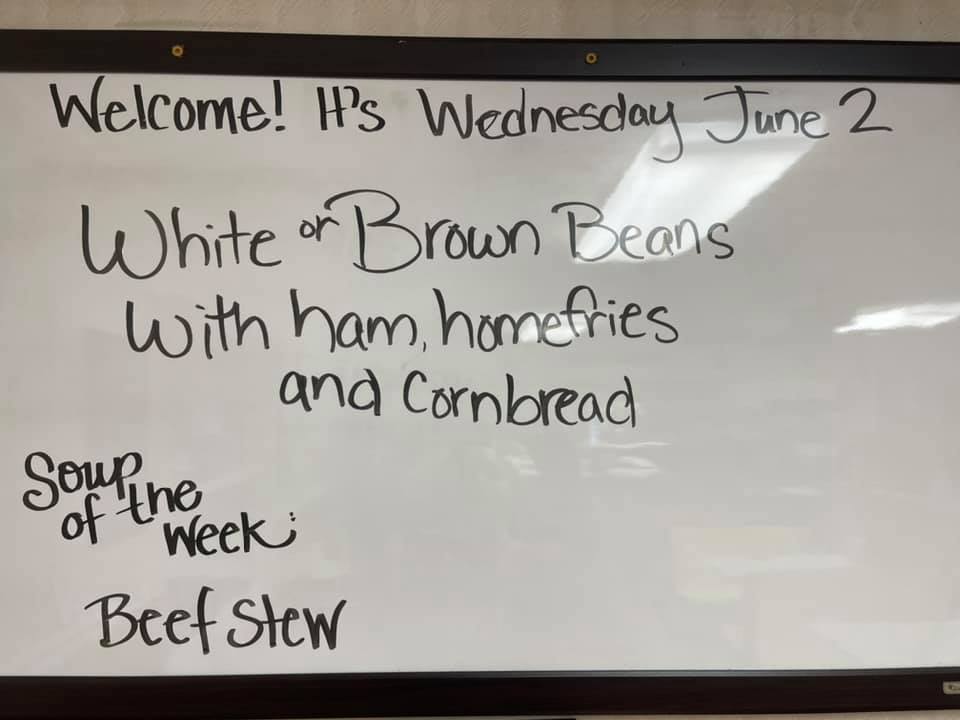 Welcome! It's Wednesday June 2
White or Brown Beans
with ham, homefries
and Cornbread
Soup
of the
Week:
Beef Stew